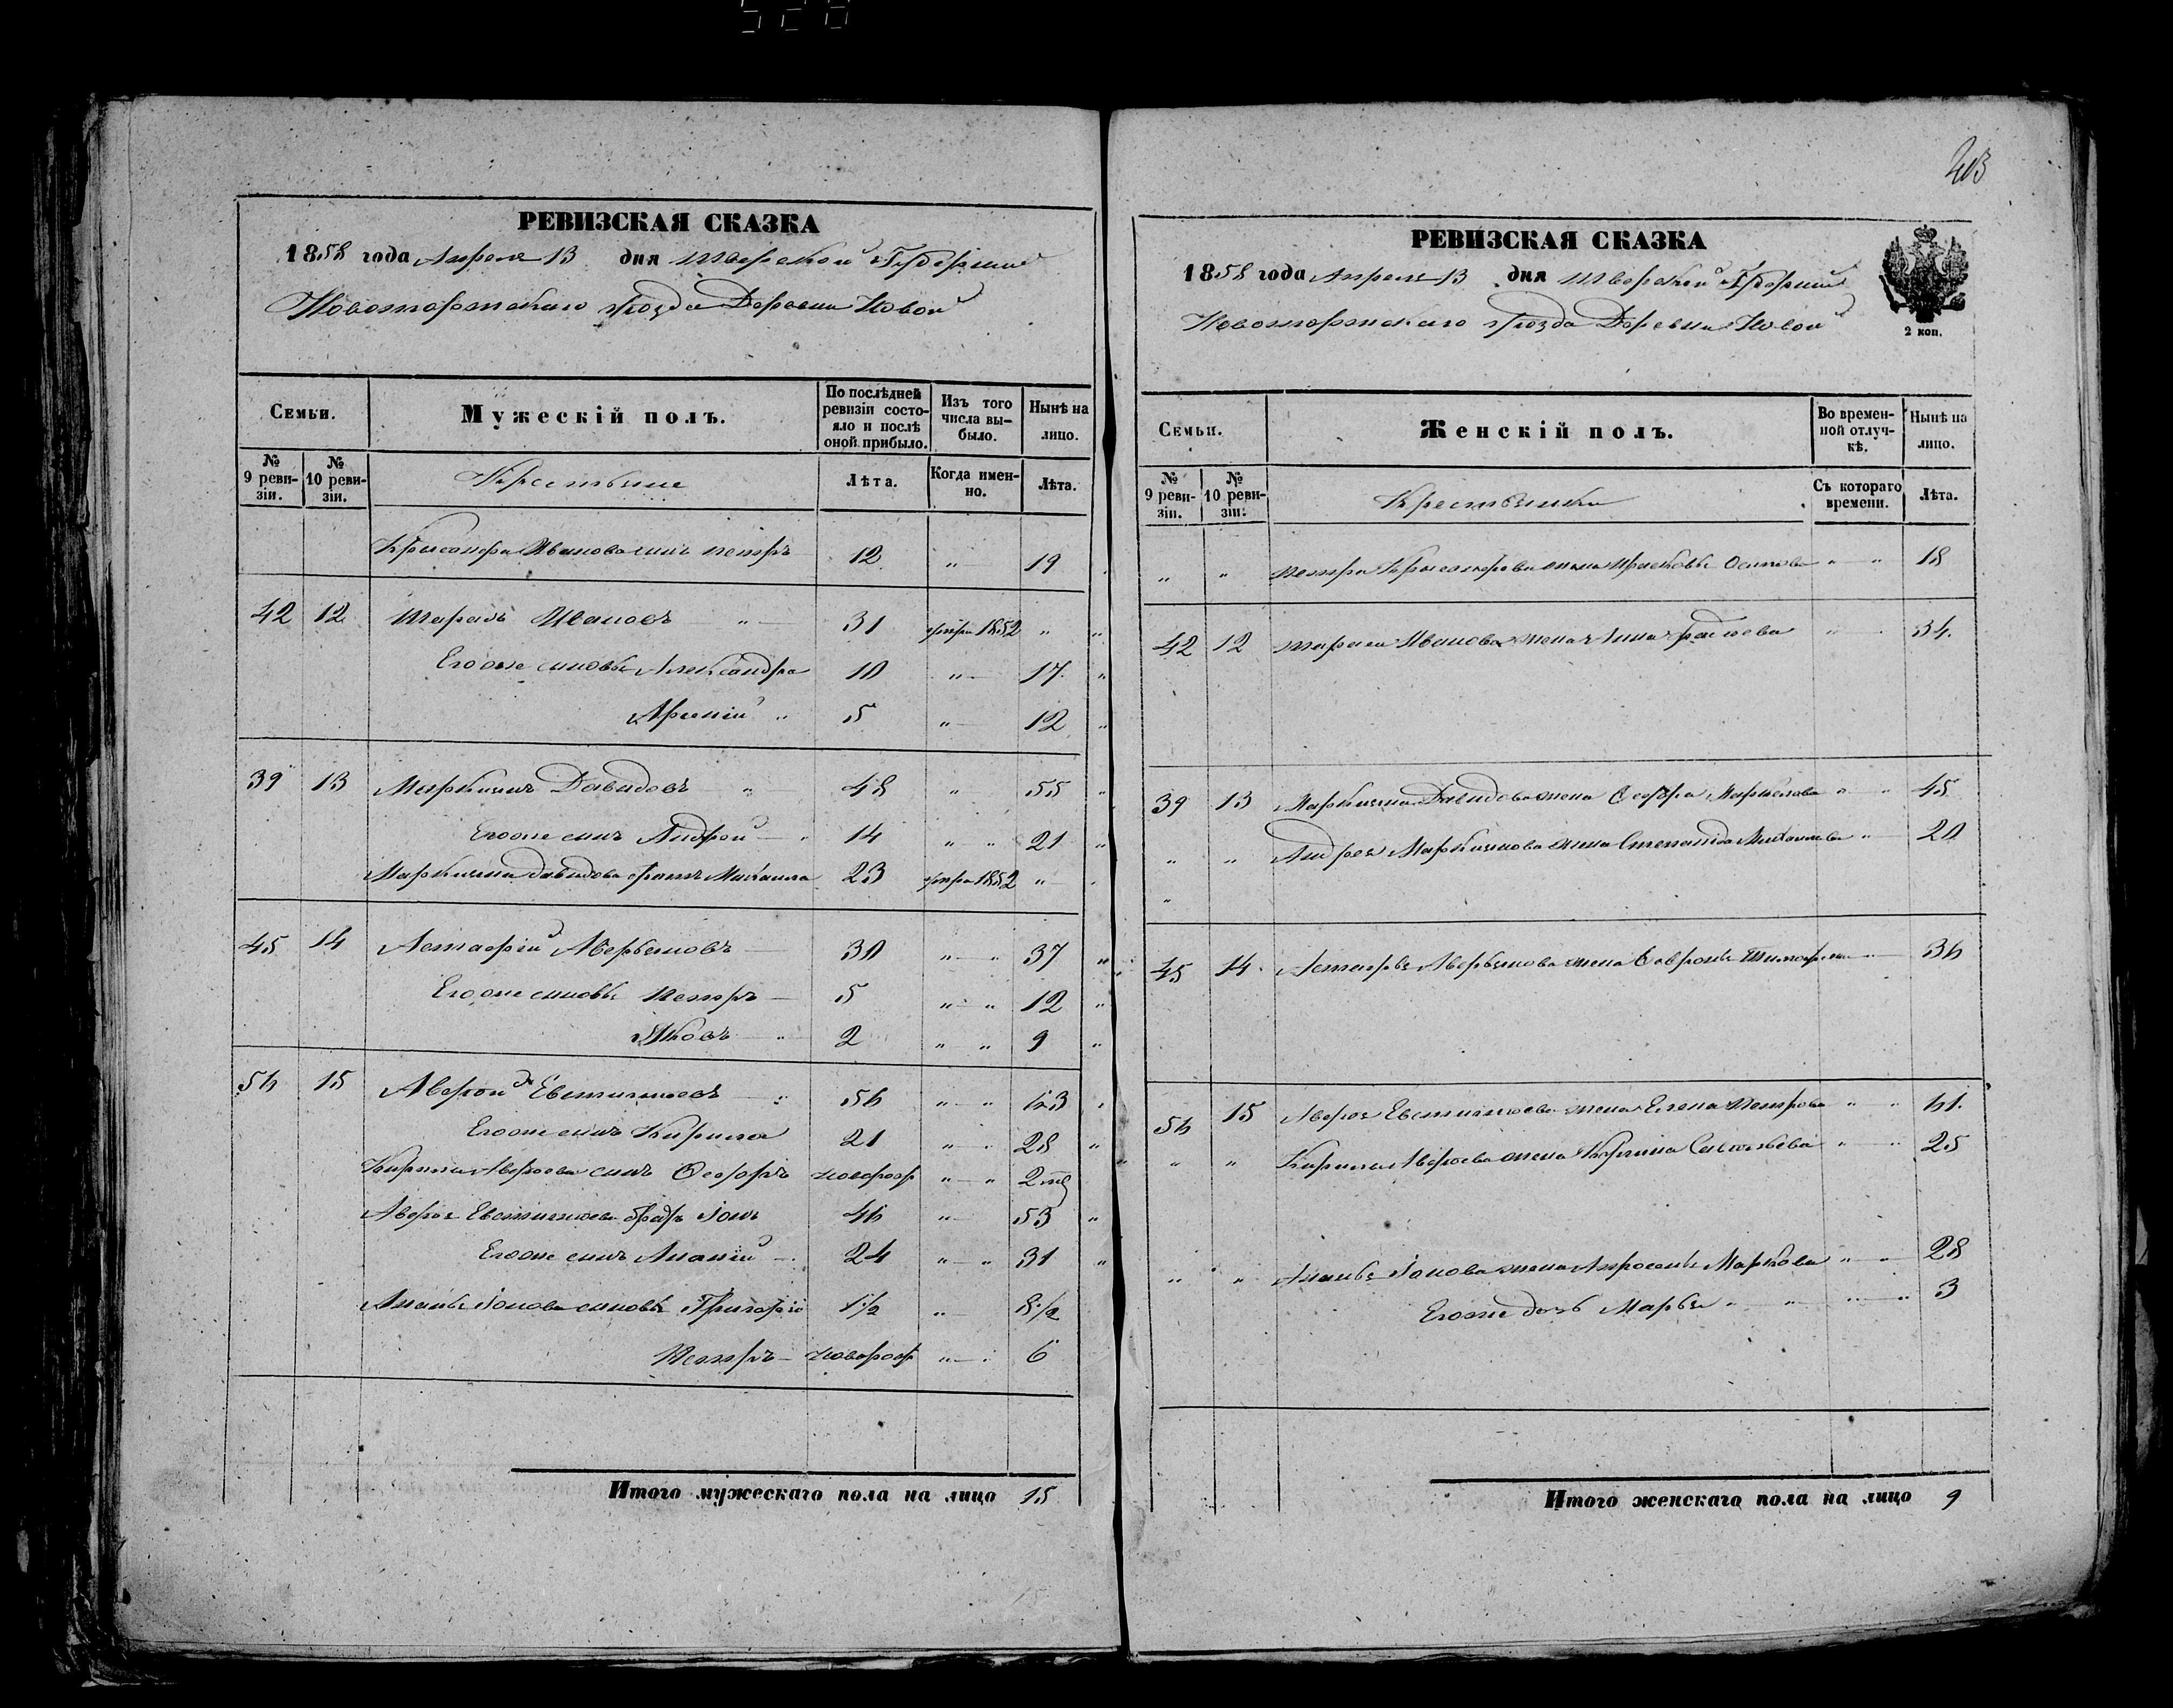 203
РЕВИЗСКАЯ СКАЗКА
1858 года Апреля 13 дня Тверской Губернии
Новоторжскаго уѣзда Деревни Новой
Семьи.
Мужескій полъ.
По послѣдней ревизіи состояло и послѣ оной прибыло.
Изъ того числа выбыло.
Нынѣ на лицо.
№ 9 ревизіи.
№ 10 ревизіи.
Крестьяне
Лѣта.
Когда именно.
Лѣта.
Хрисанфа Иванова сынъ Петръ 12 " 19
42 12 Тарасъ Ивановъ " 31 1852 "
Его же сыновья Александра 10 " 17
Арсеній " 5 " 12
39 13 Маркианъ Давидовъ " 48 " 55
Его же сынъ Андрей 14 " " 21
Маркиана Давидова братъ Михаила 23 1852 "
45 14 Астафій Аверьяновъ 30 " " 37
Его же сыновья Петръ 5 " " 12
Яковъ 2 " " 9
56 15 Аверой Евстигнеевъ 56 " " 63
Его же сынъ Кирила 21 " " 28
Кирилы Авероева сынъ Ѳеодоръ новорож " " 2 мѣ
Евстигнеева братъ Іонъ 46 " 53
Его же сынъ Ананій 24 " " 31
Ананья Іонова сыновья Григорій 1 1/2 " 8 1/2
Петръ новорож " 6
Итого мужескаго пола на лицо 15
РЕВИЗСКАЯ СКАЗКА
1858 года Апреля 13 дня Тверской Губерніи
Новоторжскаго уѣзда Деревни Новой
2 коп.
Семьи.
Женскій полъ.
Во временной отлучкѣ.
Нынѣ на лицо.
№ 9 ревизіи.
№ 10 ревизіи.
Крестьянки
Съ котораго времени.
Лѣта.
" " Петра Хрисанфова жена Прасковья Осипова " " 18
42 12 Тараса Иванова жена Анна " 34.
39 13 Маркиана Давидова жена Маркелова " " 45
" " Андрея Маркианова жена Степанида Михаилова " 20
"
45 14 Астафья Аверьянова жена Ѳевронья 36
56 15 Евстигнеева жена Елена Петрова " " 61.
" " Кирилы Авероева жена Савельева " " 25
" " Ананья Іонова жена Апросинья Маркова " " 28
Его же дочь Марья " " " 3
Итого женскаго пола на лицо 9